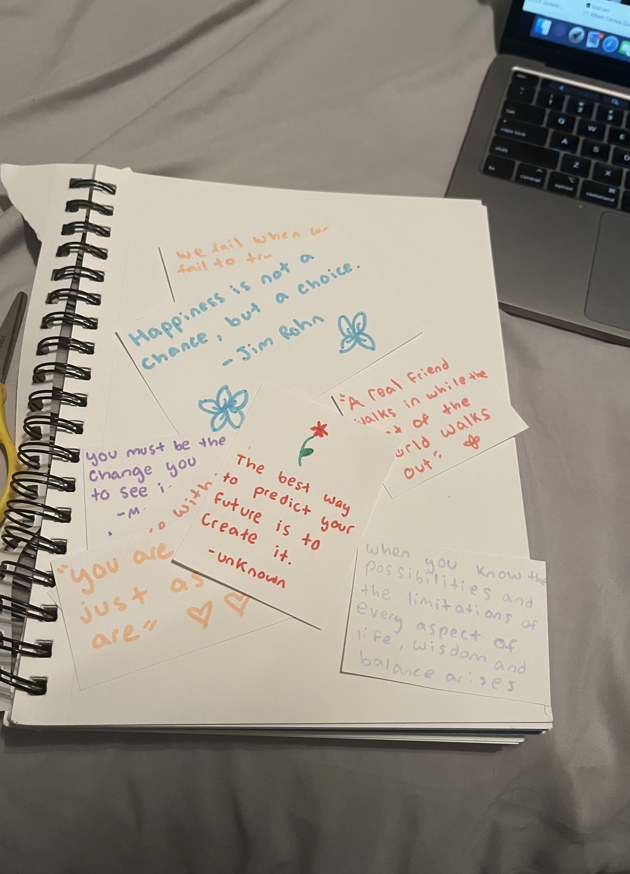 we fail when we
fail to
Happiness is not a
chance, but a choice.
- Jim Rohn
"A real friend
walks in while the
of the
world walks
out"
you must be the
change you
to see
-M
with
The best way
to predict your
future is to
create it.
-unknown
"you are
just as
are"
when you know the
possibilities and
the limitations of
every aspect of
life, wisdom and
balance arises
tab
caps lock
shift
fn
control
option
command
Q
W
E
A
S
D
Z
X